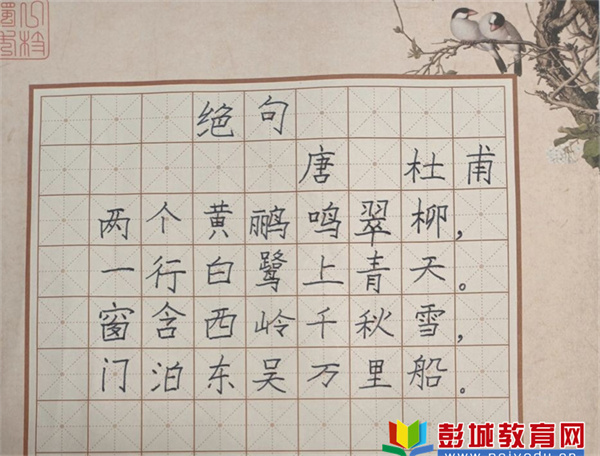 绝句
唐 杜甫
两个黄鹂鸣翠柳，
一行白鹭上青天。
窗含西岭千秋雪，
门泊东吴万里船。
彭城教育网